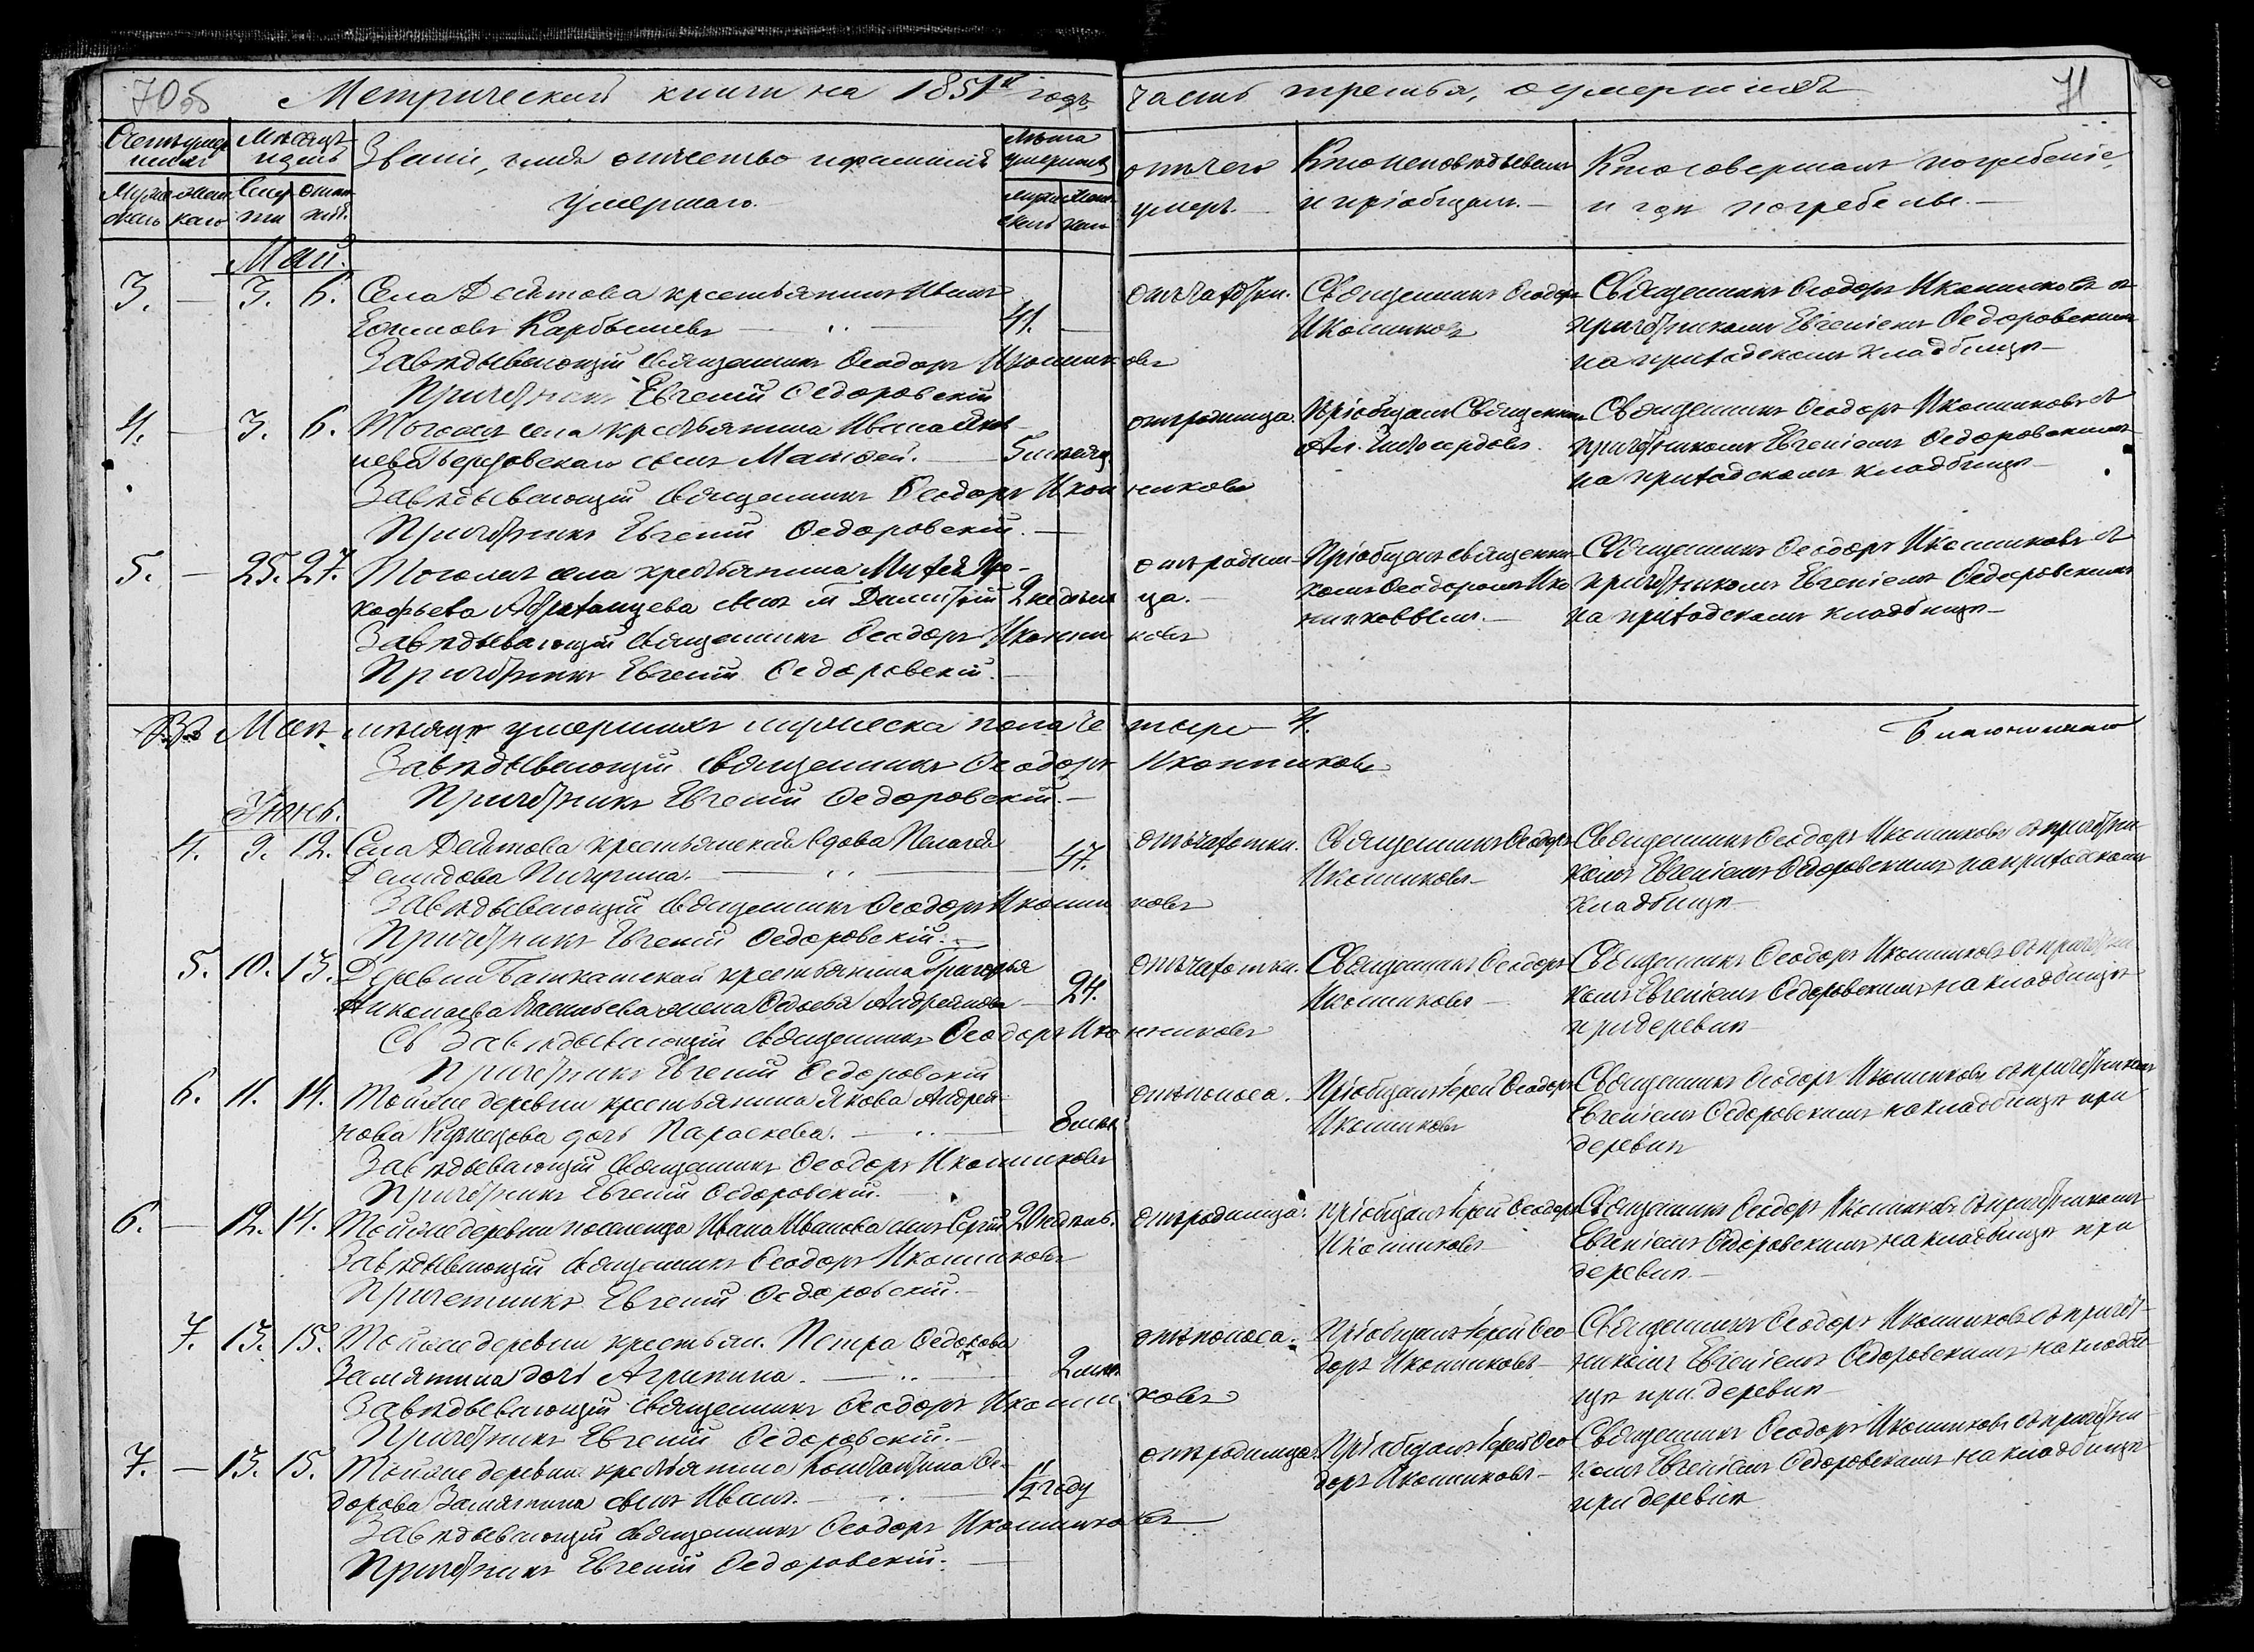 70об
Метрической книги на 1851й годъ,
часть третья, о умершихъ
71
Счетъ умершихъ
Мѣсяцъ и день
Званіе, имя отчество и фамилія умершаго.
Лѣта умершаго
отъ чего умеръ.
Кто исповѣдывалъ и пріобщалъ.
Кто совершалъ погребеніе, и гдѣ погребены.
Мужескаго
женскаго
Смерти
Май.
3. — 3. 6. Села Дектова крестьянинъ Иванъ
Ефимовъ Карбышевъ — 41. —
отъ чахотки.
Священникъ Ѳеодоръ
Иконниковъ
Священникъ Ѳеодоръ Иконниковъ съ
причетникомъ Евгеніемъ Ѳедоровскимъ
на приходскомъ кладбищѣ —
Завѣдывающій священникъ Ѳеодоръ Иконниковъ
Причетникъ Евгеній Ѳедоровскій
4. — 3. 6. Тогоже села крестьянина Ивана
сынъ Матѳей. —
отъ родимца.
Пріобщалъ Священникъ
Священникъ Ѳеодоръ Иконниковъ съ
причетникомъ Евгеніемъ Ѳедоровскимъ
на приходскомъ кладбищѣ —
Завѣдывающій священникъ Ѳеодоръ Иконниковъ
Причетникъ Евгеній Ѳедоровскій. —
5. — 25. 27. Тогоже села крестьянина Михея Про-
кофьева сынъ Димитрій 2 недѣли
отъ родим-
ца. —
Пріобщалъ священни-
комъ Ѳеодоромъ Ико-
никовымъ. —
Священникъ Ѳеодоръ Иконниковъ съ
причетникомъ Евгеніемъ Ѳедоровскимъ
на приходскомъ кладбищѣ —
Завѣдывающій священникъ Ѳеодоръ Иконниковъ
Причетникъ Евгеній Ѳедоровскій. —
Въ Маѣ мѣсяцѣ умершихъ мужеска пола четыре — 4.
Завѣдывающій священникъ Ѳеодоръ Иконниковъ
Причетникъ Евгеній Ѳедоровскій. —
Іюнь.
4. 9. 12. Села Дектова крестьянская вдова Пелагея
Демидова Пичугина. — 47.
отъ чахотки.
Священникъ Ѳеодоръ
Иконниковъ —
Священникъ Ѳеодоръ Иконниковъ съ причетни-
комъ Евгеніемъ Ѳедоровскимъ на приходскомъ
кладбищѣ —
Завѣдывающій священникъ Ѳеодоръ Иконниковъ
Причетникъ Евгеній Ѳедоровскій. —
5. 10. 13. Деревни Башкатской крестьянина Григорья
Николаева Васильева жена Андреянова — 24.
отъ чахотки.
Священникъ Ѳеодоръ
Иконниковъ —
Священникъ Ѳеодоръ Иконниковъ съ причетни-
комъ Евгеніемъ Ѳедоровскимъ на кладбищѣ
при деревнѣ
Св Завѣдывающій священникъ Ѳеодоръ Иконниковъ
Причетникъ Евгеній Ѳедоровскій
6. 11. 14. Тойже деревни крестьянина Якова Андрея-
нова Кузнецова дочь Параскева. —
отъ поноса. —
Пріобщалъ Іерей Ѳеодоръ
Иконниковъ
Священникъ Ѳеодоръ Иконниковъ съ причетникомъ
Евгеніемъ Ѳедоровскимъ на кладбищѣ при
деревнѣ
Завѣдывающій священникъ Ѳеодоръ Иконниковъ
Причетникъ Евгеній Ѳедоровскій.
6. — 12. 14. Тойже деревни поселенца Ивана Иванова сынъ Сергій
отъ родимца.
пріобщалъ Іерей Ѳеодоръ
Иконниковъ
Священникъ Ѳеодоръ Иконниковъ съ причетникомъ
Евгеніемъ Ѳедоровскимъ на кладбищѣ при
деревнѣ. —
Завѣдывающій священникъ Ѳеодоръ Иконниковъ
Причетникъ Евгеній Ѳедоровскій. —
7. 13. 15. Тойже деревни крестьян. Петра Ѳедорова
Замятина дочь Агрипина. —
отъ поноса.
Пріобщалъ Іерей Ѳео-
доръ Иконниковъ —
Священникъ Ѳеодоръ Иконниковъ съ причет-
никомъ Евгеніемъ Ѳедоровскимъ на кладби-
щѣ при деревнѣ
Завѣдывающій священникъ Ѳеодоръ Иконниковъ
Причетникъ Евгеній Ѳедоровскій. —
7. — 13. 15. Тойже деревни крестьянина Константина Ѳе-
дорова Замятина сынъ Иванъ. — 1/2 году
отъ родимца
Пріобщалъ Іерей Ѳео-
доръ Иконниковъ —
Священникъ Ѳеодоръ Иконниковъ съ причетни-
комъ Евгеніемъ Ѳедоровскимъ на кладбищѣ
при деревнѣ
Завѣдывающій священникъ Ѳеодоръ Иконниковъ
Причетникъ Евгеній Ѳедоровскій. —